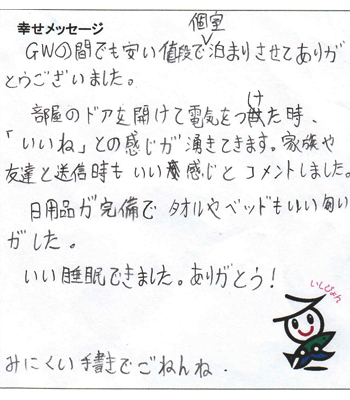 幸せメッセージ
GWの間でも安い値段で個室泊まりさせてありが
とうございました。
部屋のドアを開けて電気をつけた時、
「いいね」との感じが湧きてきます。家族や
友達と送信時もいい感じとコメントしました。
日用品が完備でタオルやベッドもいい匂い
がした。
いい睡眠できました。ありがとう!
いしぴょん
みにくい手書きでごねんね.